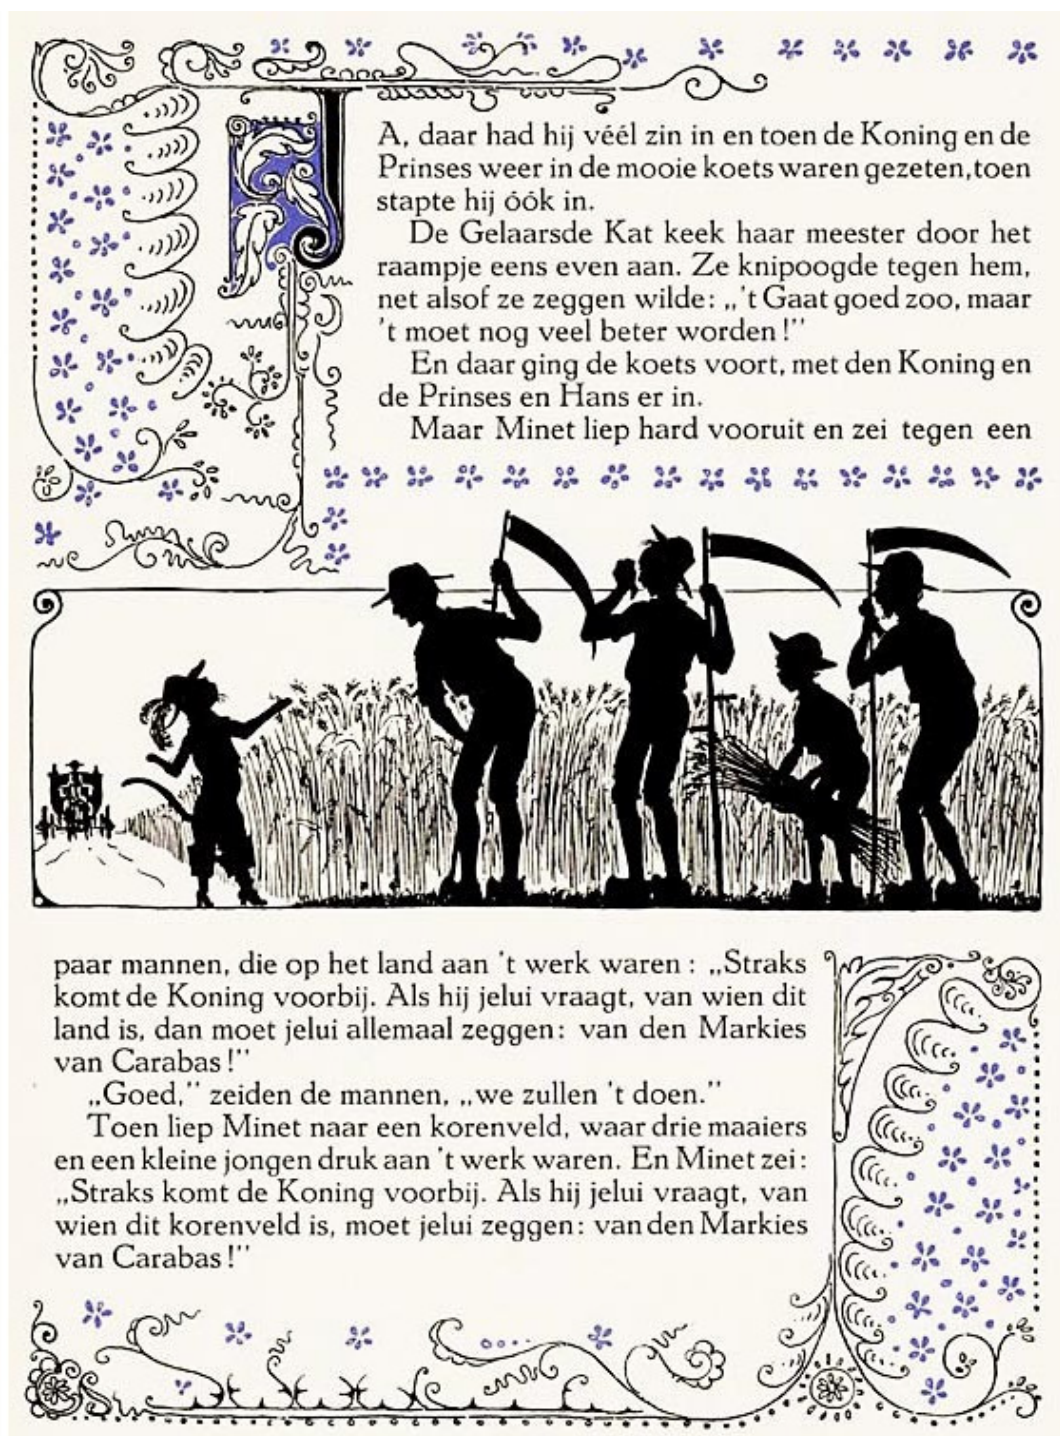 JA, daar had hij véél zin in en toen de Koning en de
Prinses weer in de mooie koets waren gezeten, toen
stapte hij óók in.
De Gelaarsde Kat keek haar meester door het
raampje eens even aan. Ze knipoogde tegen hem,
net alsof ze zeggen wilde: „'t Gaat goed zoo, maar
't moet nog veel beter worden!”
En daar ging de koets voort, met den Koning en
de Prinses en Hans er in.
Maar Minet liep hard vooruit en zei tegen een
paar mannen, die op het land aan 't werk waren: „Straks
komt de Koning voorbij. Als hij jelui vraagt, van wien dit
land is, dan moet jelui allemaal zeggen: van den Markies
van Carabas!”
„Goed,” zeiden de mannen, „we zullen 't doen.”
Toen liep Minet naar een korenveld, waar drie maaiers
en een kleine jongen druk aan 't werk waren. En Minet zei:
„Straks komt de Koning voorbij. Als hij jelui vraagt, van
wien dit korenveld is, moet jelui zeggen: van den Markies
van Carabas!”